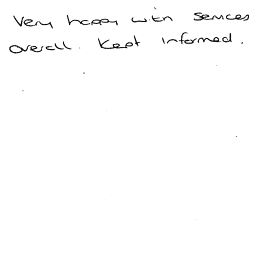 Very happy with services
overall. Kept informed.